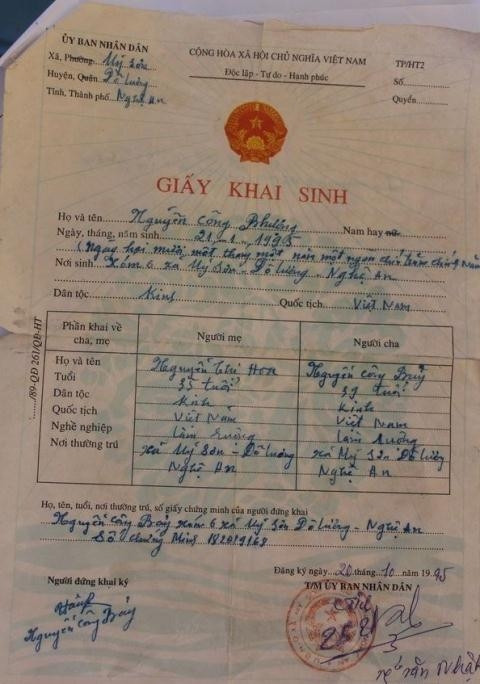 ỦY BAN NHÂN DÂN
Xã, Phường Mỹ Sơn
Huyện, Quận Đô Lương
Tỉnh, Thành phố Nghệ An
CỘNG HÒA XÃ HỘI CHỦ NGHĨA VIỆT NAM
Độc lập - Tự do - Hạnh phúc
TP/HT2
Số
Quyển
GIẤY KHAI SINH
Họ và tên Nguyễn Công Phượng Nam hay nữ
Ngày, tháng, năm sinh 21-1-1995
(Ngày hai mươi một tháng một năm một ngàn chín trăm chín năm
Nơi sinh Xóm 6 xã Mỹ Sơn - Đô Lương - Nghệ An
Dân tộc Kinh Quốc tịch Việt Nam
Phần khai về cha, mẹ Người mẹ Người cha
Họ và tên Nguyễn Thị Hoa Nguyễn Công Bảy
Tuổi 35 tuổi 39 tuổi
Dân tộc Kinh Kinh
Quốc tịch Việt Nam Việt Nam
Nghề nghiệp Làm ruộng Làm ruộng
Nơi thường trú xã Mỹ Sơn - Đô Lương xã Mỹ Sơn Đô Lương
Nghệ An Nghệ An
/89-QĐ 261/QĐ-HT
Họ, tên, tuổi, nơi thường trú, số giấy chứng minh của người đứng khai
Nguyễn Công Bảy xóm 6 xã Mỹ Sơn Đô Lương - Nghệ An
Số chứng minh
Đăng ký ngày 20 tháng 10 năm 1995
Người đứng khai ký
T/M ỦY BAN NHÂN DÂN
Nguyễn Công Bảy